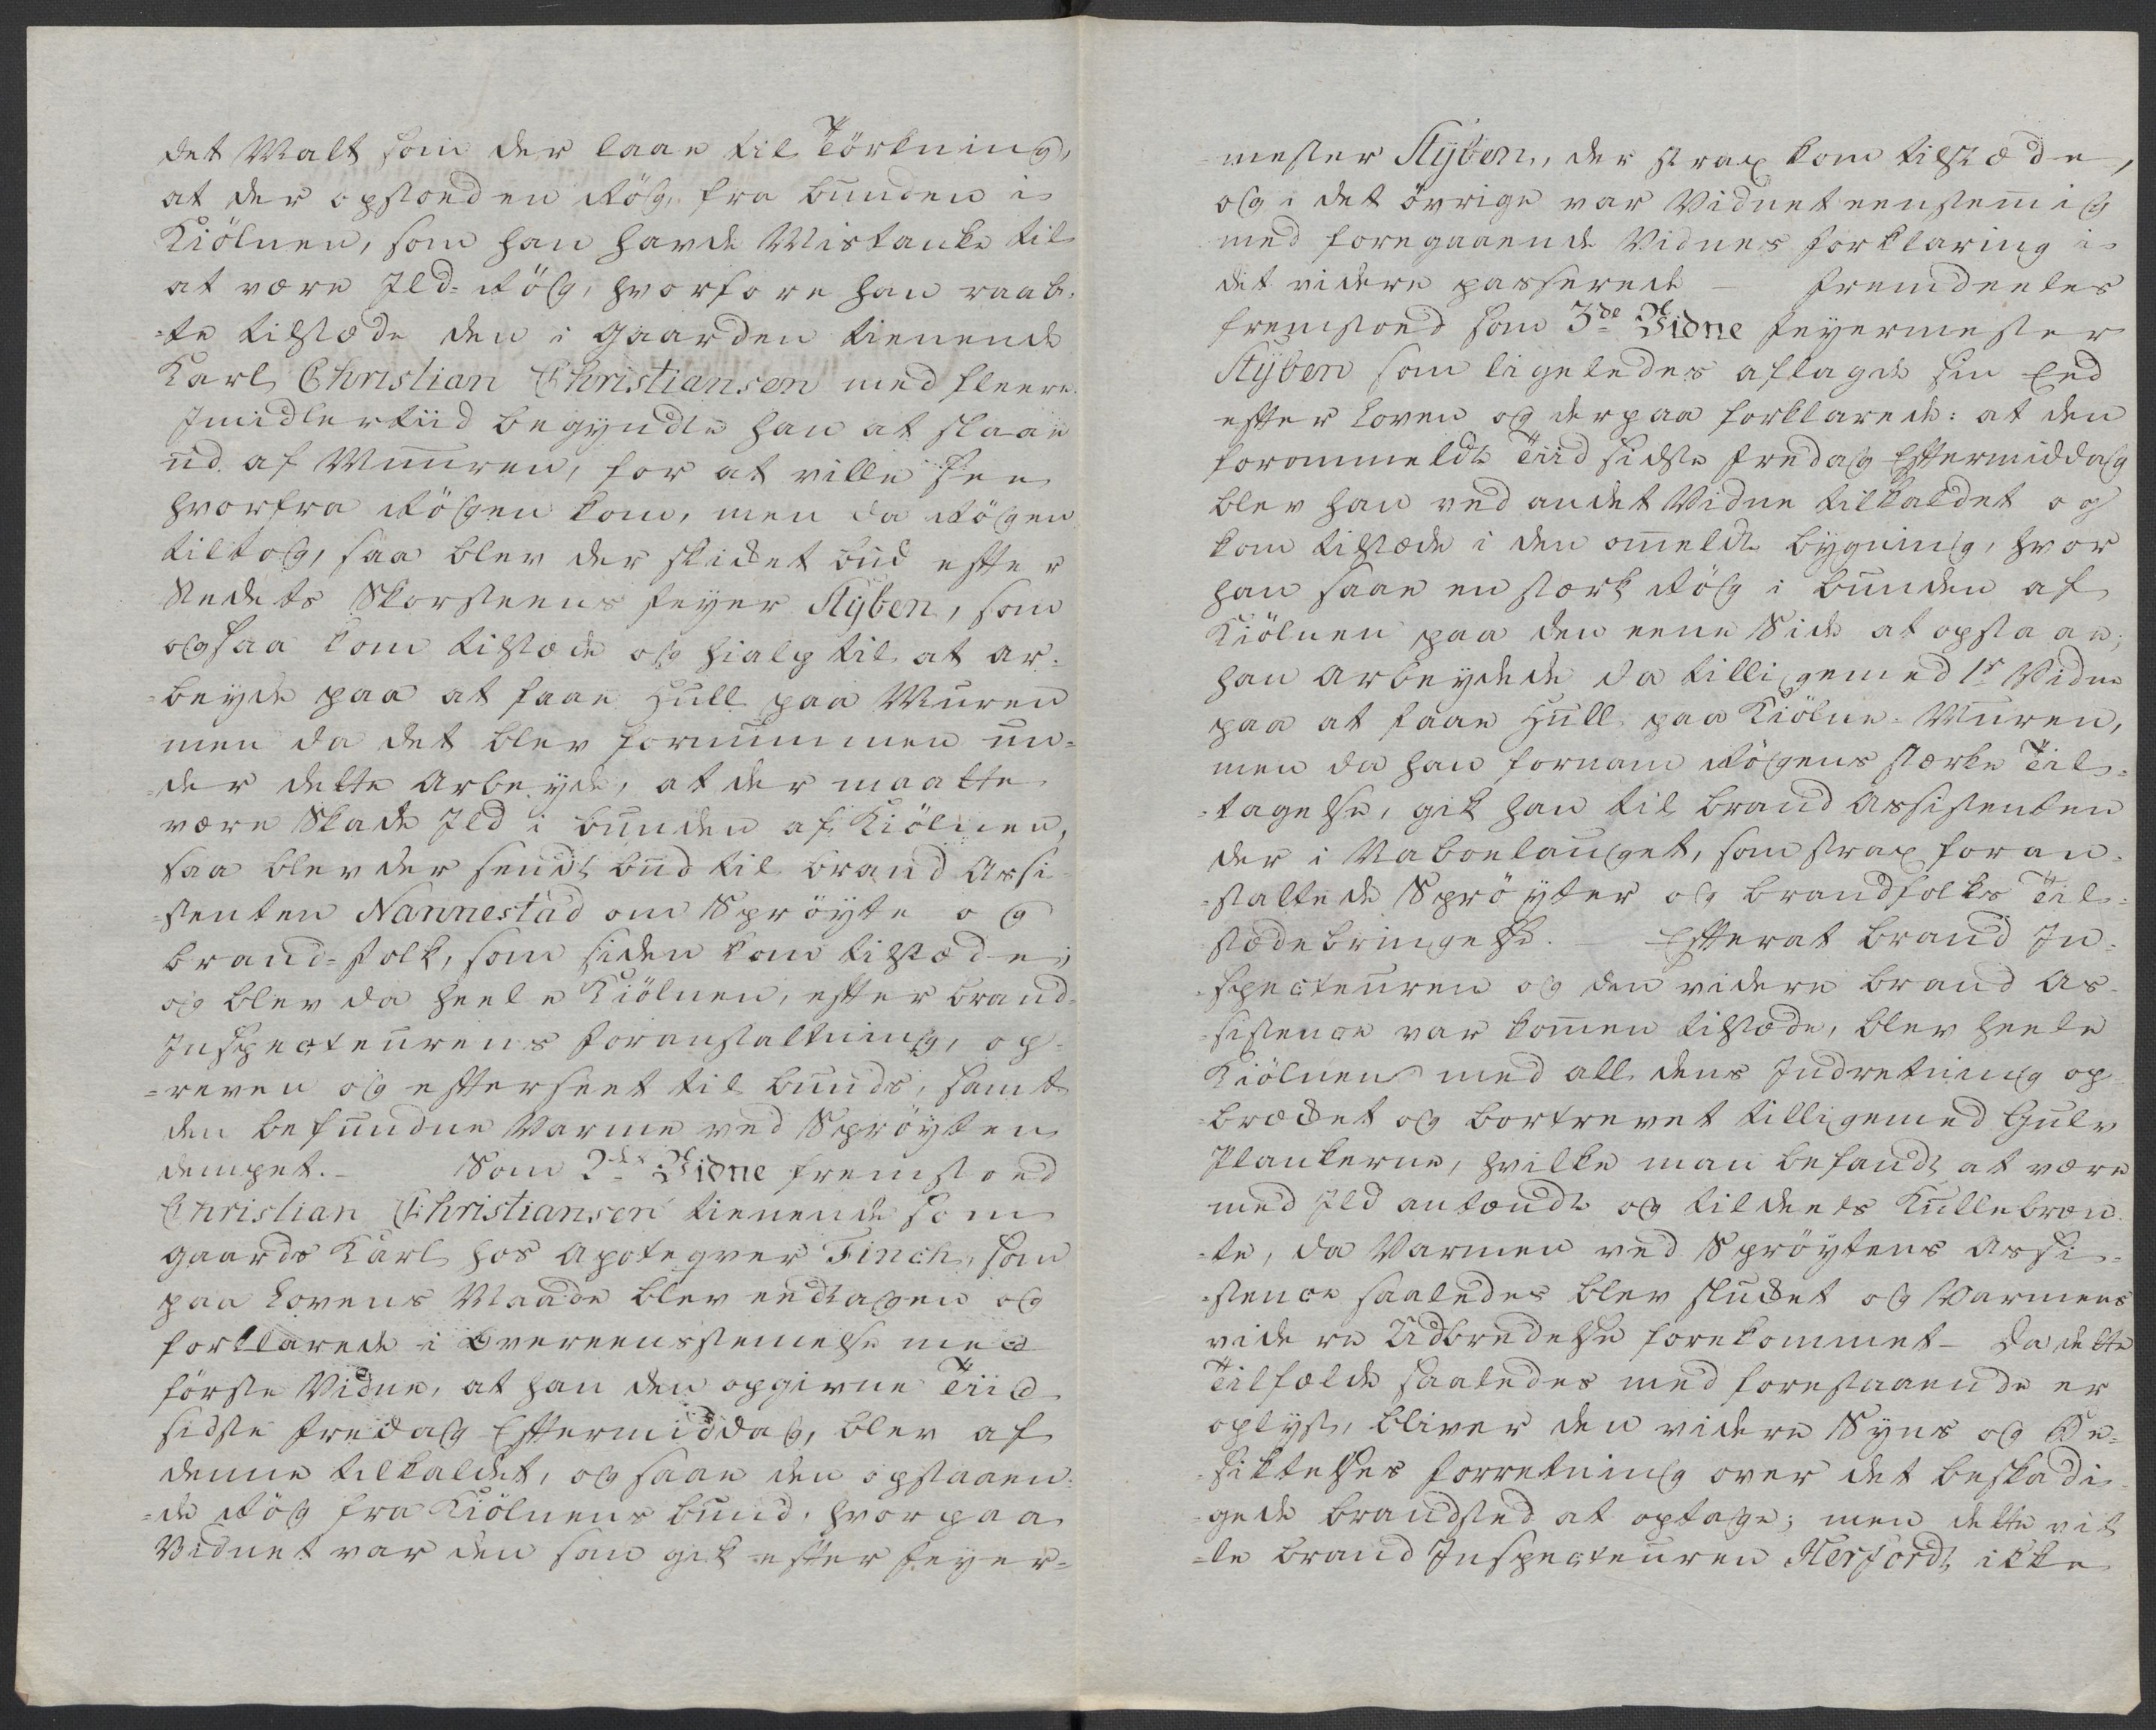 det Malt som der laae til Törkning,
at der opstoed en Rög, fra bunden i
Kiölnen, som han havde Mistanke til
at være Jld-Rög, hvorfore han raab-
-te tilstæde den i Gaarden tienende
Karl Christian Christiansen med fleere.
Jmidlertiid begyndte han at slaae
ud af Muuren, for at ville see
hvorfra Rögen kom, men da Rögen
tiltog, saa blev der skicket bud efter
Stedets Skorsteens feyer Stÿben, som
ogsaa kom tilstæde og hialp til at ar-
-beyde paa at faae Hull paa Muren
men da det blev fornummen un-
-der dette Arbeyde, at der maatte
være Skade Jld i bunden af Kiölnen,
saa blev der sendt bud til brand Assi-
-stenten Nannestad om Spröyte og
brand-folk, som siden kom tilstæde,
og blev da heele Kiölnen, efter brand-
Jnspecteurens foranstaltning, op-
-reven og efterseet til bunds, samt
den befundne Varme ved Spröyten
dempet.- Som 2det Vidne fremstoed
Christian Christiansen tienende som
gaards Karl hos Apoteqver Finch, som
paa Lovens Maade blev eedtagen og
forklarede i Overeensstemelse med
förste Vidne, at han den opgivne Tiid
sidste fredag Eftermiddag, blev af
denne tilkaldet, og saae den opstaaen-
-de Rög fra Kiölnens bund, hvorpaa
Vidnet var den som gik efter feyer-
-mester Stÿben, der strax kom tilstæde,
og i det övrige var Vidnet eenstemig
med foregaaende Vidnes forklaring i
det videre passerede - fremdeeles
fremstoed som 3de Vidne feyermester
Stÿben som ligeledes aflagde sin Eed
efter Loven og derpaa forklarede: at den
forommeldte Tiid sidste fredag Eftermiddag
blev han ved andet Vidne tilkaldet og
kom tilstæde i den omeldte bygning, hvor
han saae en stærk Rög i bunden af
Kiölnen paa den eene Side at opstaae;
han arbeydede da tilligemed 1ste Vidne
paa at faae Hull paa Kiölne-Muren,
men da han fornam Rögens stærke Til-
-tagelse, gik han til brand Assistenten
der i Naboelauget, som strax foran-
-staltede Spröyter og brandfolks Til-
stædebringelse. - Efterat brand Jn-
-specteuren og den videre brand As-
-sistence var komen tilstæde, blev heele
Kiölnen med all dens Jndretning op-
-brækket og bortrevet tilligemed Gulv
Plankerne, hvilke man befandt at være
med Jld antændte og tildeels Kullebræn-
-te, da Varmen ved Spröytens Assi-
-stence saaledes blev slukket og Varmens
videre Udbredelse forekommet - Da dette
Tilfælde saaledes med forestaaende er
oplyst, bliver den videre Syns og Be-
-sigtelses forretning over det beskadi-
-gede brandsted at optage; men dette vil-
-le brand Jnspecteuren Herfordt ikke